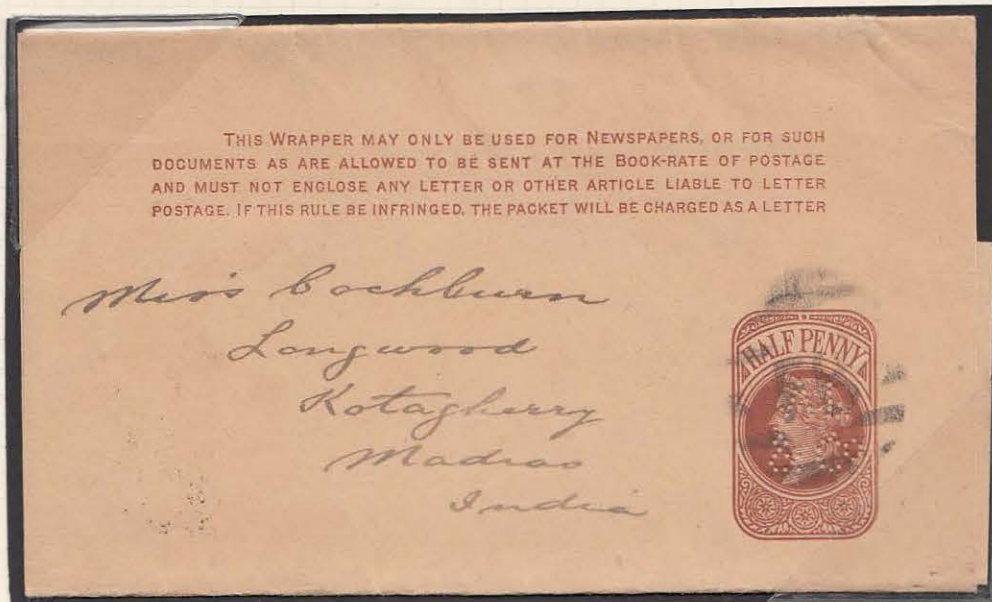 THIS WRAPPER MAY ONLY BE USED FOR NEWSPAPERS, OR FOR SUCH
DOCUMENTS AS ARE ALLOWED TO BE SENT AT THE BOOK-RATE OF POSTAGE
AND MUST NOT ENCLOSE ANY LETTER OR OTHER ARTICLE LIABLE TO LETTER
POSTAGE. IF THIS RULE BE INFRINGED, THE PACKET WILL BE CHARGED AS A LETTER
Miss Cockburn
Longwood
Kotagherry
Madras
India
HALF PENNY